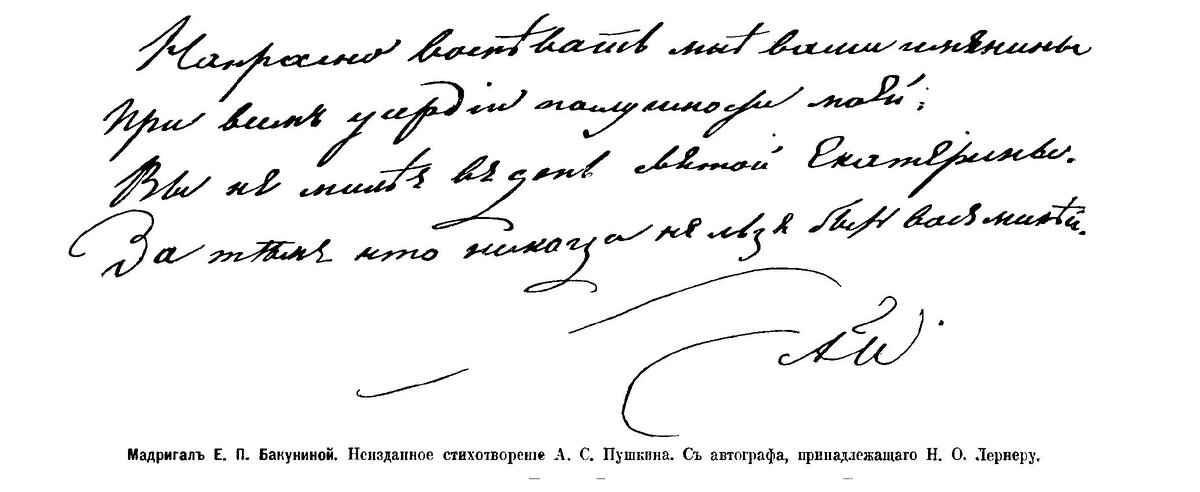 Напрасно воспѣвать мнѣ ваши имянины
При всемъ усердіи послушности моей;
Вы не милѣе въ день святой Екатерины.
За тѣмъ что никогда не льзя быть васъ милѣй.
АП
Мадригалъ Е. П. Бакуниной. Неизданное стихотвореніе А. С. Пушкина. Съ автографа, принадлежащаго Н. О. Лернеру.